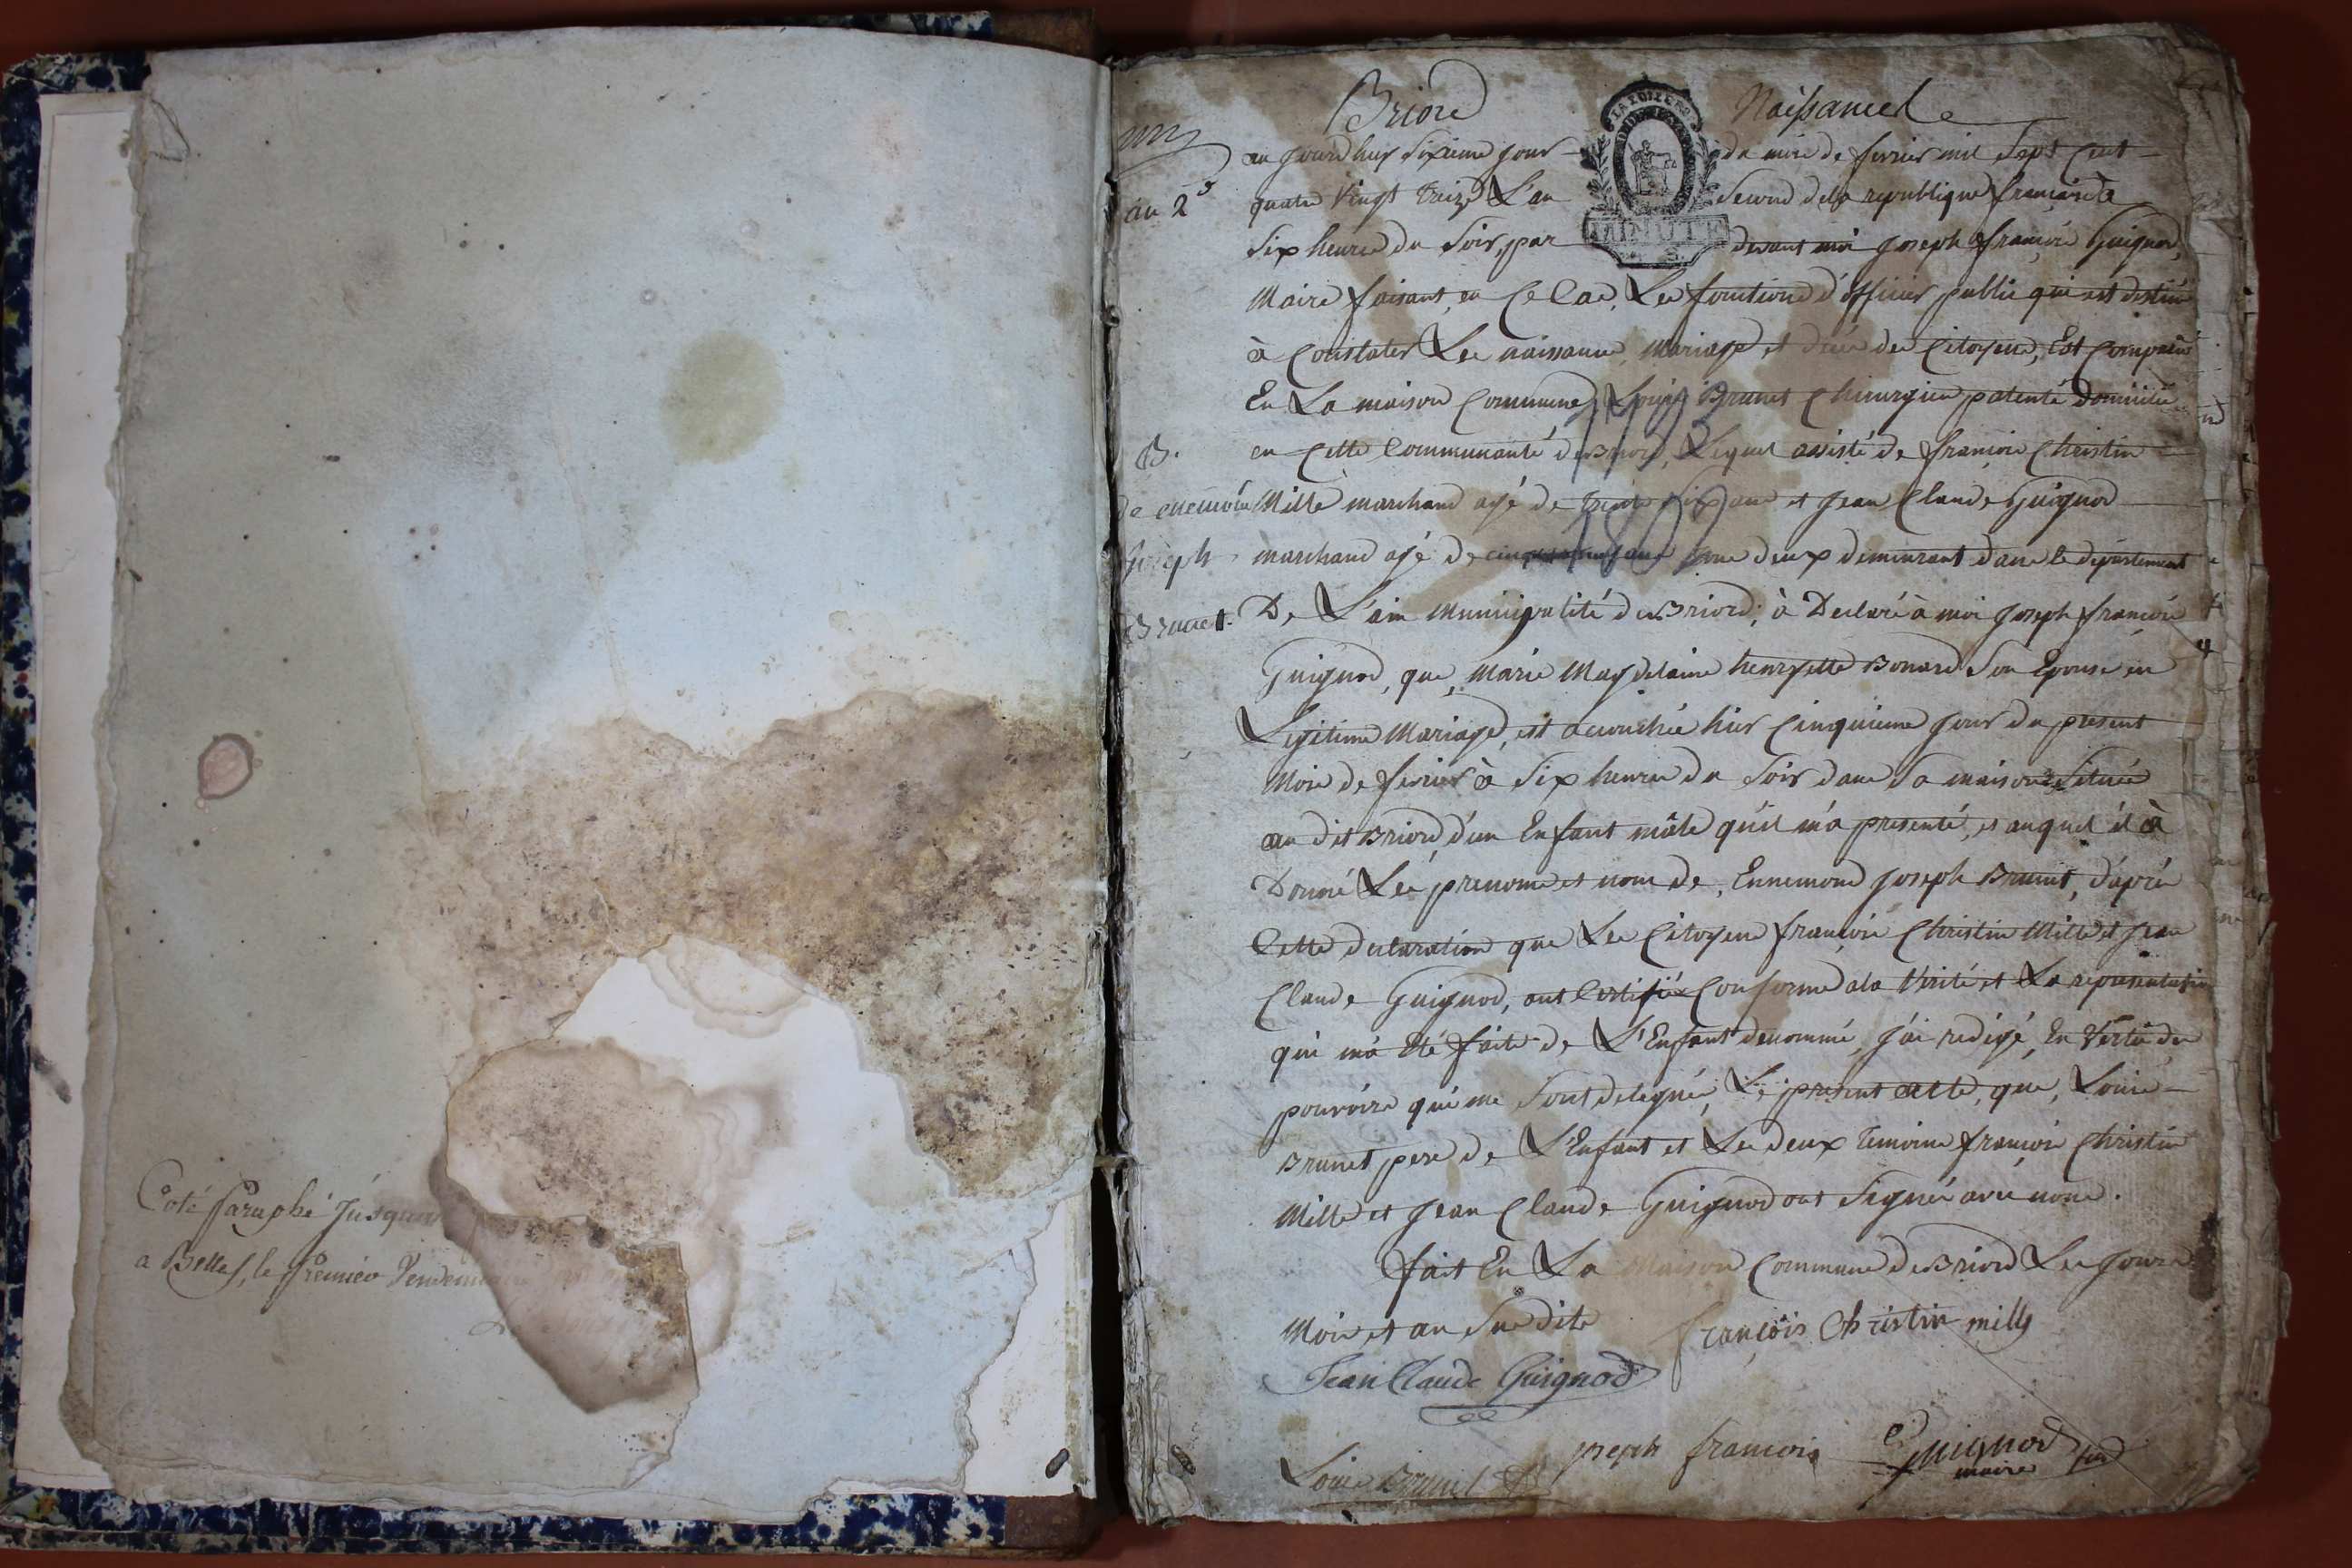 Coté paraphé jusqu
a Belley, le premier Vendemi
un
an 2
B.
de ennemond
Joseph
Brunet.
Briord Naissances
au jourd'huy sixieme jour du mois de fevrier mil sept cent
quatre vingt treize L'an second de la republique francaise à
six heures du soir, par devant moi joseph francois Guignod,
Maire faisant en ce cas, Les fonctions d'officier public qui est destiné
à constater Les naissances, Mariages et décés des citoyens, Est comparu
En La maison commune, Louis Brunet chirurgien patenté domicilié
en cette communauté de Briord, Lequel assisté de francois christin
Mille marchand agé de trente six ans et jean claude Guignod
marchand agé de tous deux demeurant dans le departement
De L'ain municipalité de Briord; à Declaré à moi joseph francois
Guignod, que, Marie Magdelaine henryette Bonard son Epouse en
Legitime Mariage, est accouchée hier cinquieme jour du present
mois de fevrier à six heures du soir dans sa maison située
au dit Briord, d'un Enfant mâle qu'il m'a presenté, et auquel il à
Donné Les prenoms et nom de, Ennemond joseph Brunet, d'aprés
Cette declaration que Les citoyens francois christin Mille et jean
claude Guignod, ont certifiée conforme a la vérité et La representation
qui m'a été faite de L'Enfant denommé, j'ai redigé, En Vertu des
pouvoirs qui me sont delegués, Le present acte, que, Louis
Brunet pere de L'Enfant et Les deux temoins francois christin
Mille et jean claude Guignod ont signés avec nous.
fait En La Maison commune de Briord Les jours
Mois et an susdits françois Christin mille
Jean Claude Guignod
joseph francois Guignod
maire
Louis Brunet
1793
180
MINUTE